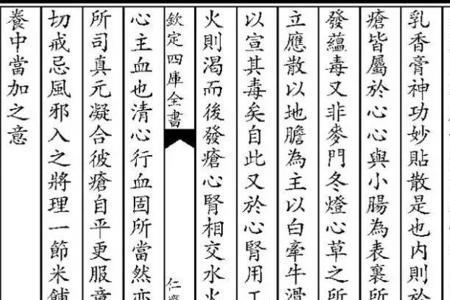 乳香膏神功妙貼散是也内則於
瘡皆屬於心心與小腸為表裏所
發蘊毒又非麥門冬燈心草之所
立應散以地膽為主以白牽牛滑
以宣其毒矣自此又於心腎用工
火則渴而後發瘡心腎相交水火
欽定四庫全書
仁
心主血也清心行血固所當然亦
所司真元凝合彼瘡自平更服
切戒忌風邪入之將理一節米
養中當加之意